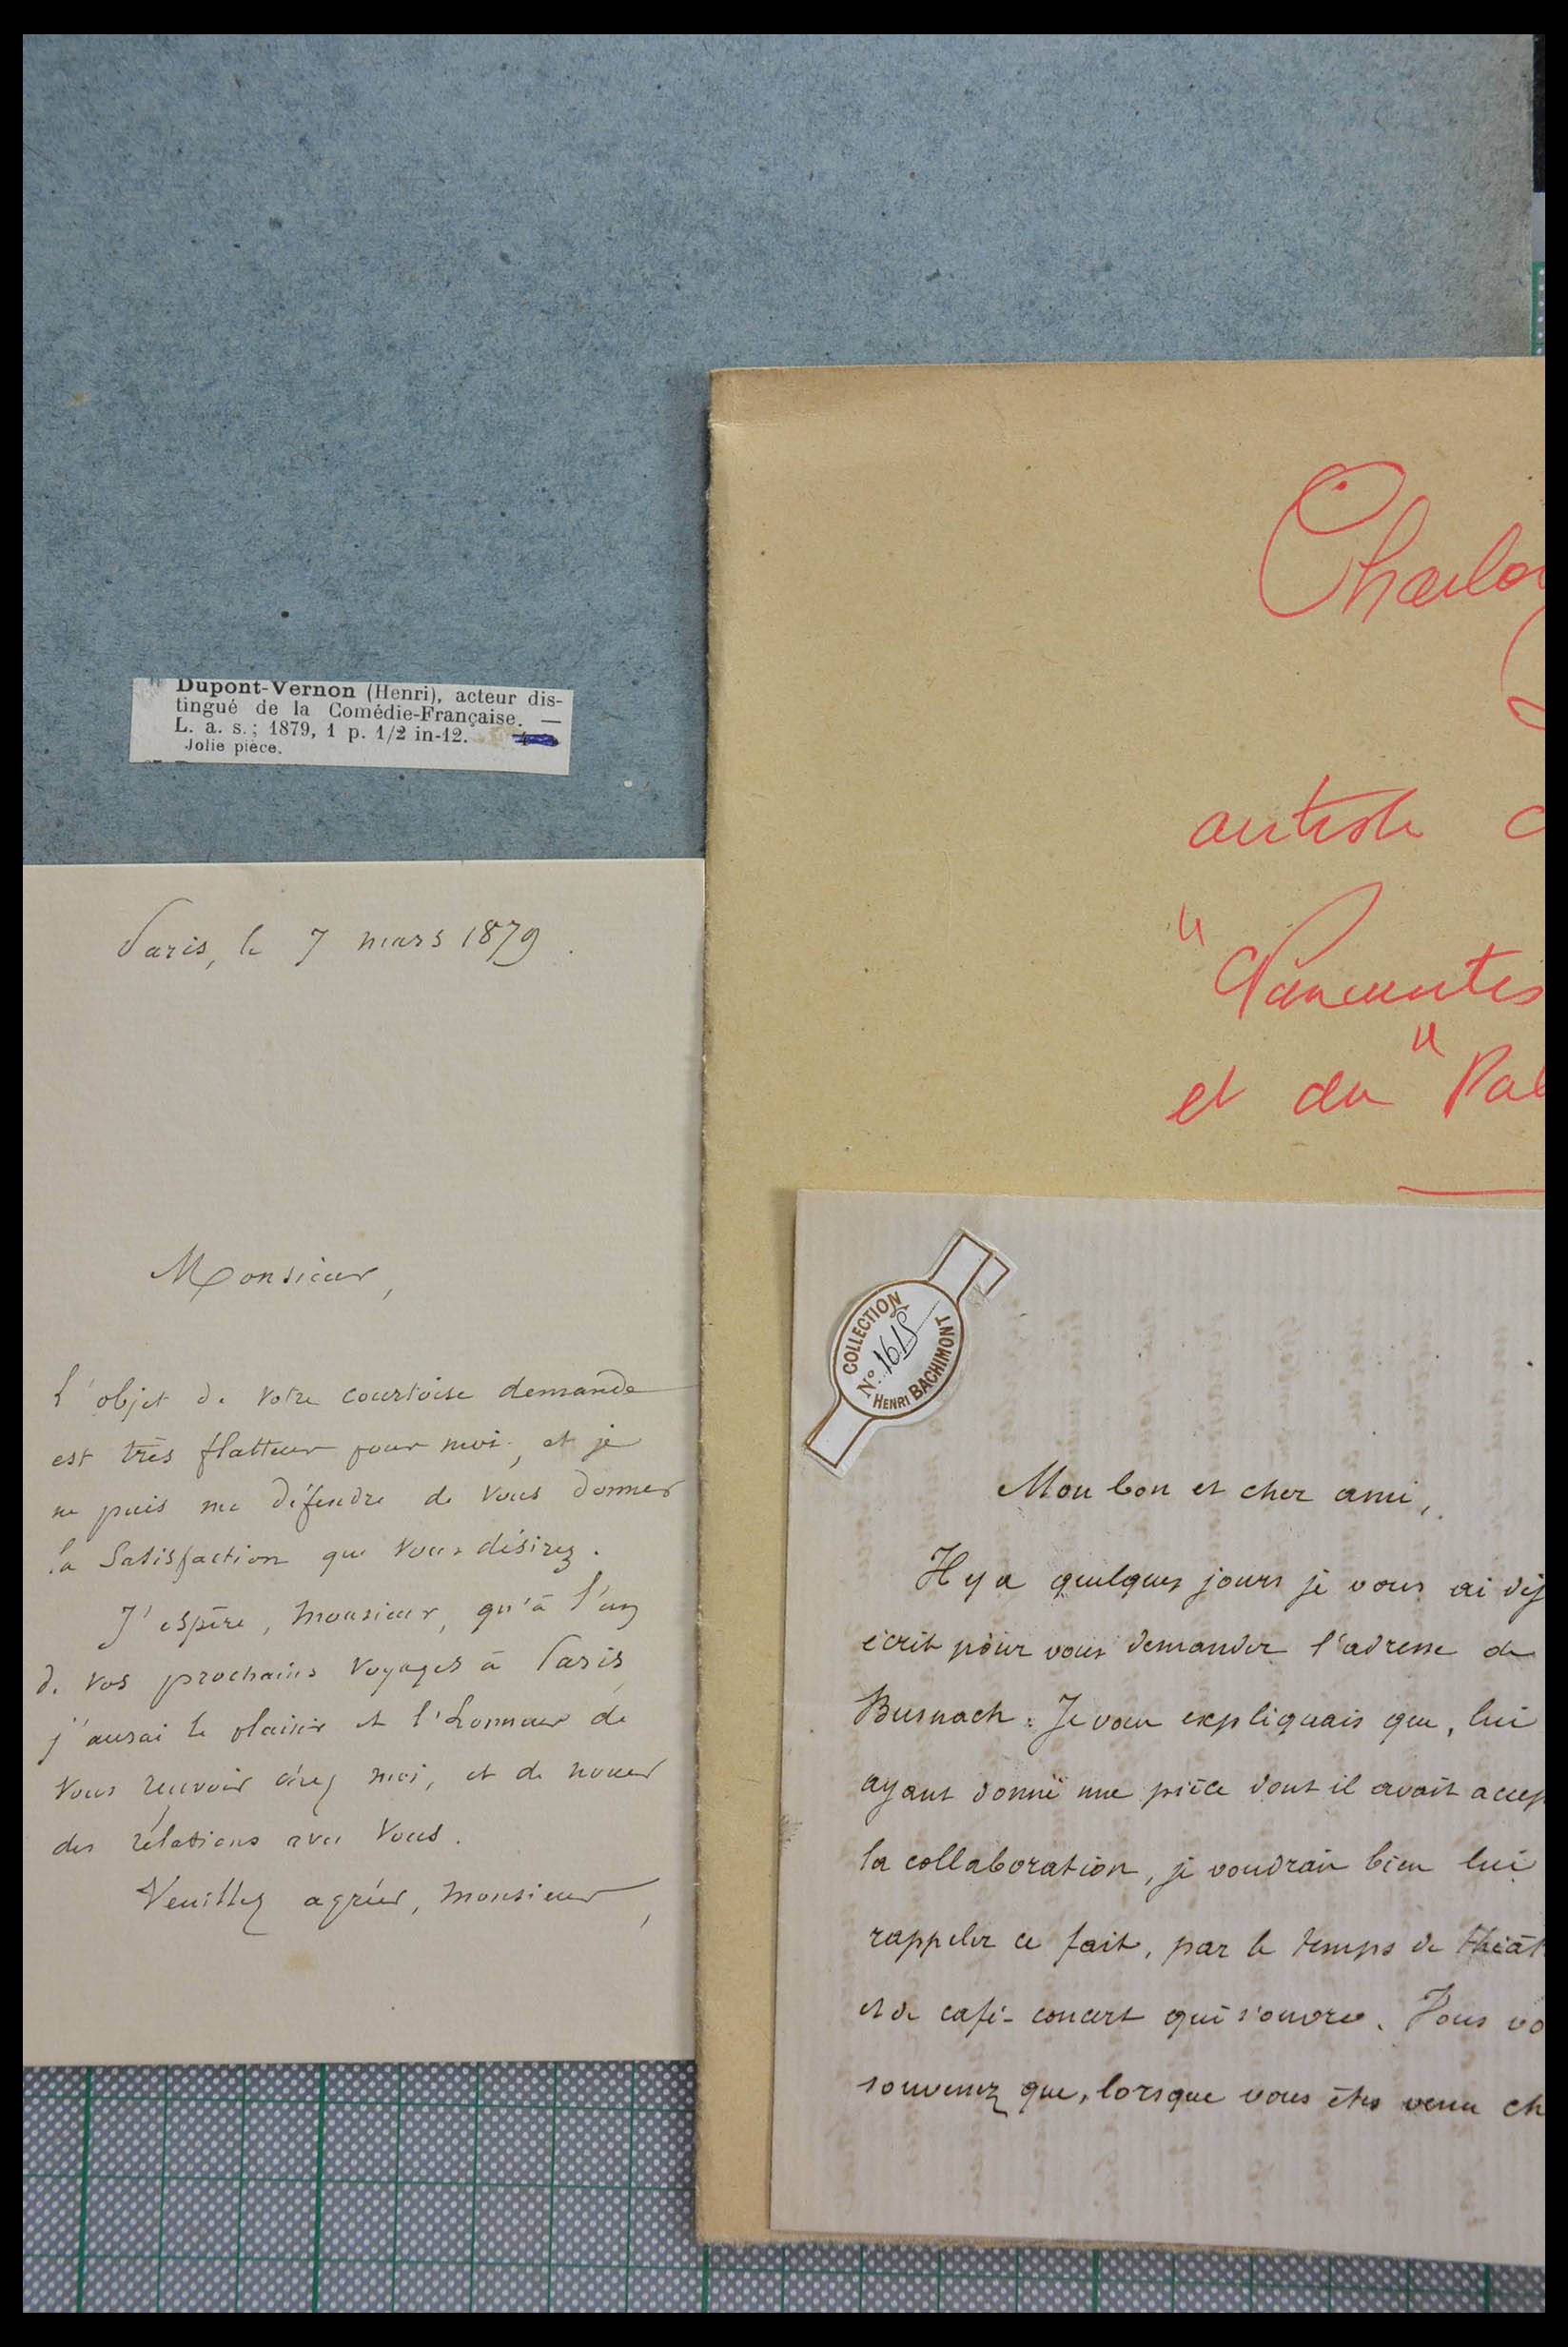 Dupont-Vernon (Henri), acteur dis-
tingué de la Comédie-Française. —
L. a. s.; 1879, 1 p. 1/2 in-12.
Jolie pièce.
Paris, le 7 mars 1879.
Monsieur,
L'objet de votre courtoise demande
est très flatteur pour moi, et je
ne puis me défendre de vous donner
la satisfaction que vous désirez.
J'espère, monsieur, qu'à l'un
de vos prochains voyages à Paris,
j'aurai le plaisir et l'honneur de
vous recevoir chez moi, et de nouer
des relations avec vous.
Veuillez agréer, monsieur,
artiste
et du "Pal
COLLECTION
N°. 1615
HENRI BACHIMONT
Mon bon et cher ami,
Il y a quelques jours je vous ai déj
écrit pour vous demander l'adresse de
Busnach. Je vous expliquais que, lui
ayant donné une pièce dont il avait accep
la collaboration, je voudrais bien lui
rappeler ce fait, par le temps de théât
et de café-concert qui s'ouvre. Vous vo
souvenez que, lorsque vous êtes venu ch